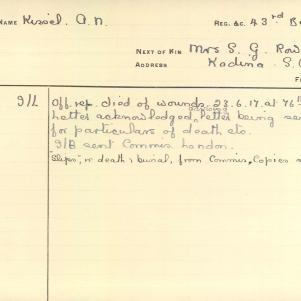 NAME Kissel. A. N. REG. &C. 43rd
NEXT OF KIN Mrs S. G. Row
ADDRESS Kadina. S.
9/1 Off. rep. died of wounds 23.6.17. at 46th
Letter acknowledged, letter being
for particulars of death etc.
9/B sent Commis London.
death & burial, from Commis, Copies